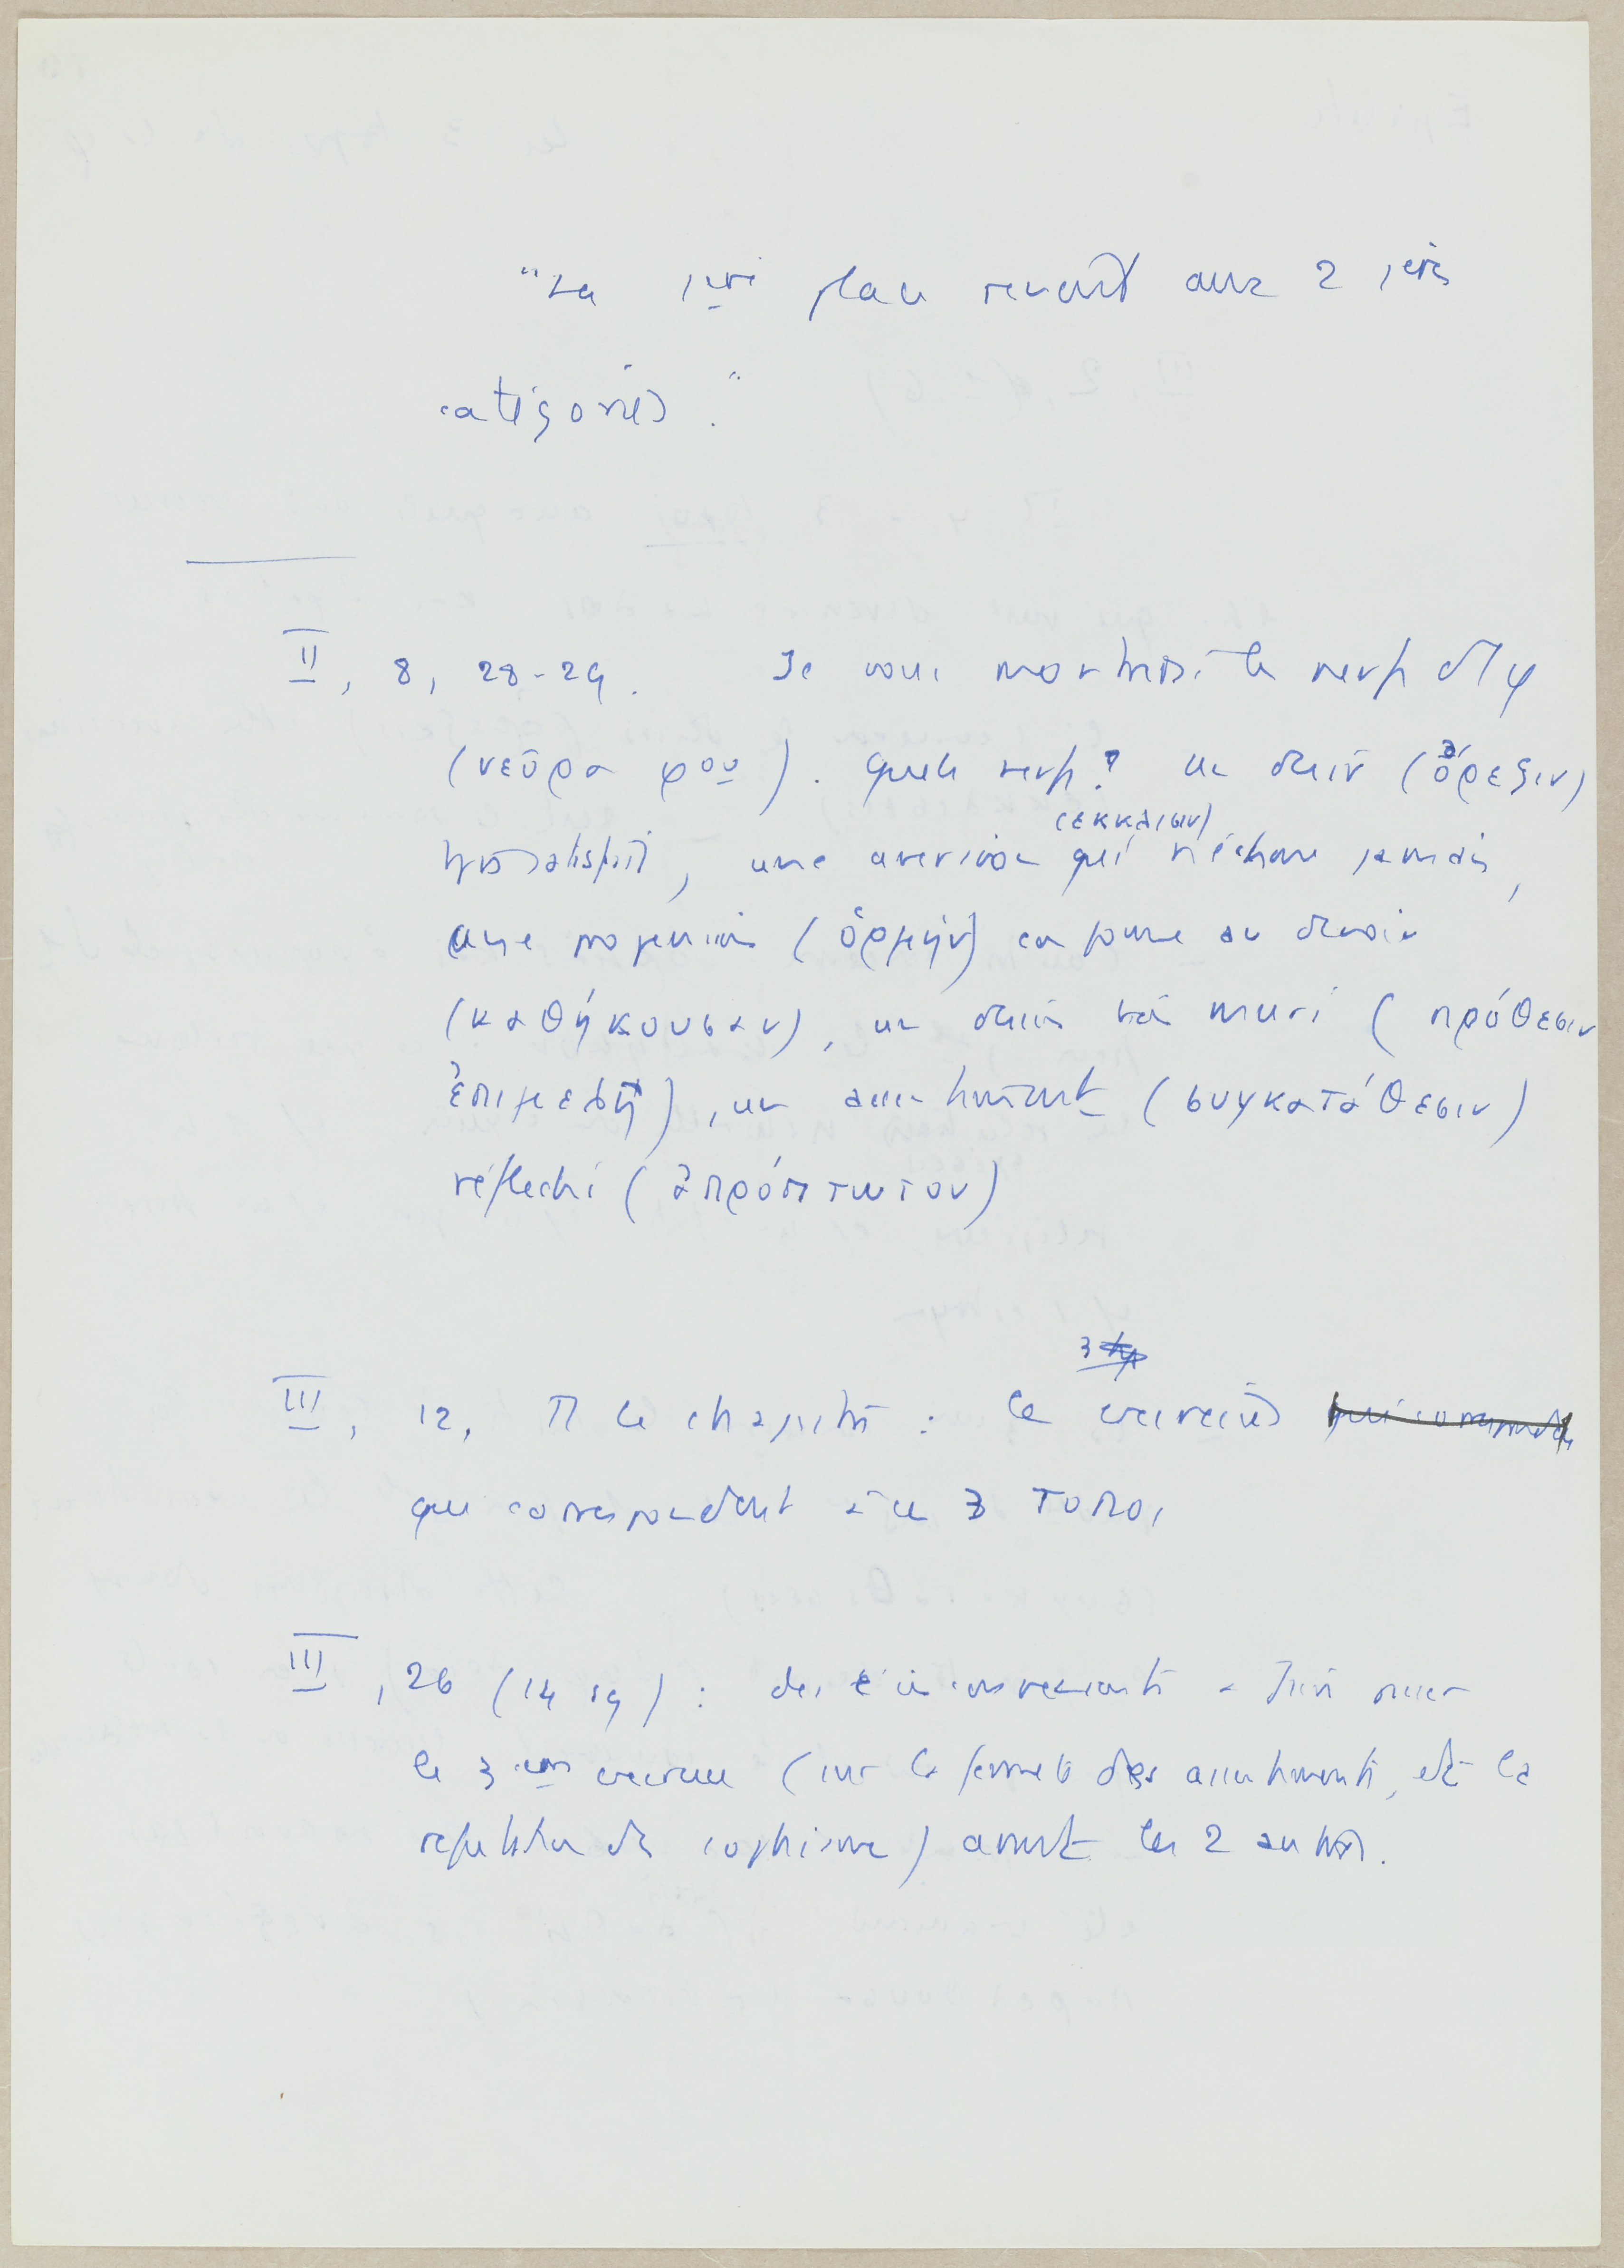 "La 1ère place revient aux 2 1ères
catégories."
II, 8, 28-29. Je vous montrerai les nerfs d'1 φ
(νεῦρα φου). Quels nerfs? un désir (ὄρεξιν)
tjrs satisfait, une aversion (εκκλισιν) qui n'échoue jamais,
une propension (ὁρμὴν) en forme de devoir
(καθήκουσαν), un dessein très muri (πρόθεσιν
ἐπιμελῆ), un assentiment (συγκατάθεσιν)
réfléchi (ἀπρόπτωτον)
III, 12. Tt le chapitre : les 3 exercices
qui correspondent à ces 3 τοποι
III, 26 (14 sq) : des inconvénients à faire passer
le 3ème exercice (sur la fermeté des assentiments, et la
réfutation des sophismes) avant les 2 autres.